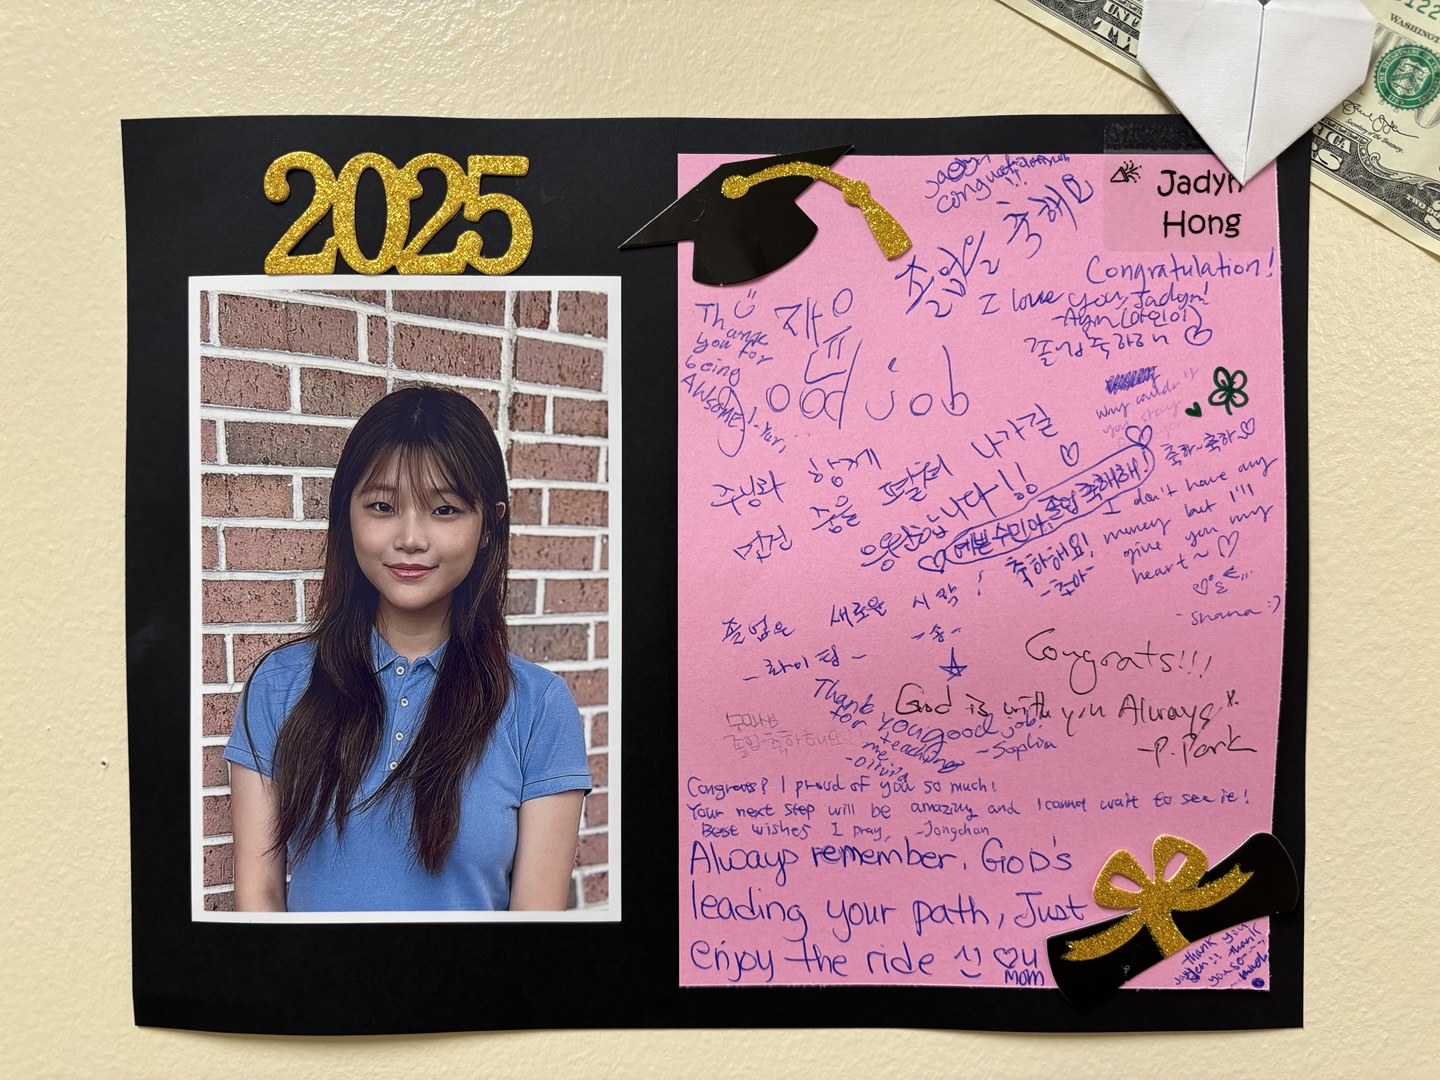 2025
Jadyn
Hong
Jadyn
congratulation
!!!
졸업을 축하해
Congratulation!
I love you, Jadyn!
졸업 축하해
Thank
you for
being
AWsome!
-Yuri
good job
why couldn't
you stay
주님과 함께
멋진 꿈을 펼쳐 나가길
응원합니다!!
예쁜 수민아, 졸업 축하해!
축하해요!
축하~축하~
I don't have any
money but I'll
give you my
heart~
-shana :)
졸업은 새로운 시작!
-송-
-화이팅-
Congrats!!!
God is with you Always
-P. Park
Thank you
for
teaching
me
-Olivia
good job!
-Sophia
수민아
졸업 축하해요!
Congrats? I proud of you so much!
Your next step will be amazing and I cannot wait to see it!
Best wishes I pray, -Jongchan
Always remember, GOD's
leading your path, Just
enjoy the ride
U
Mom
thank you
thank
you so
much
WASHINGTON